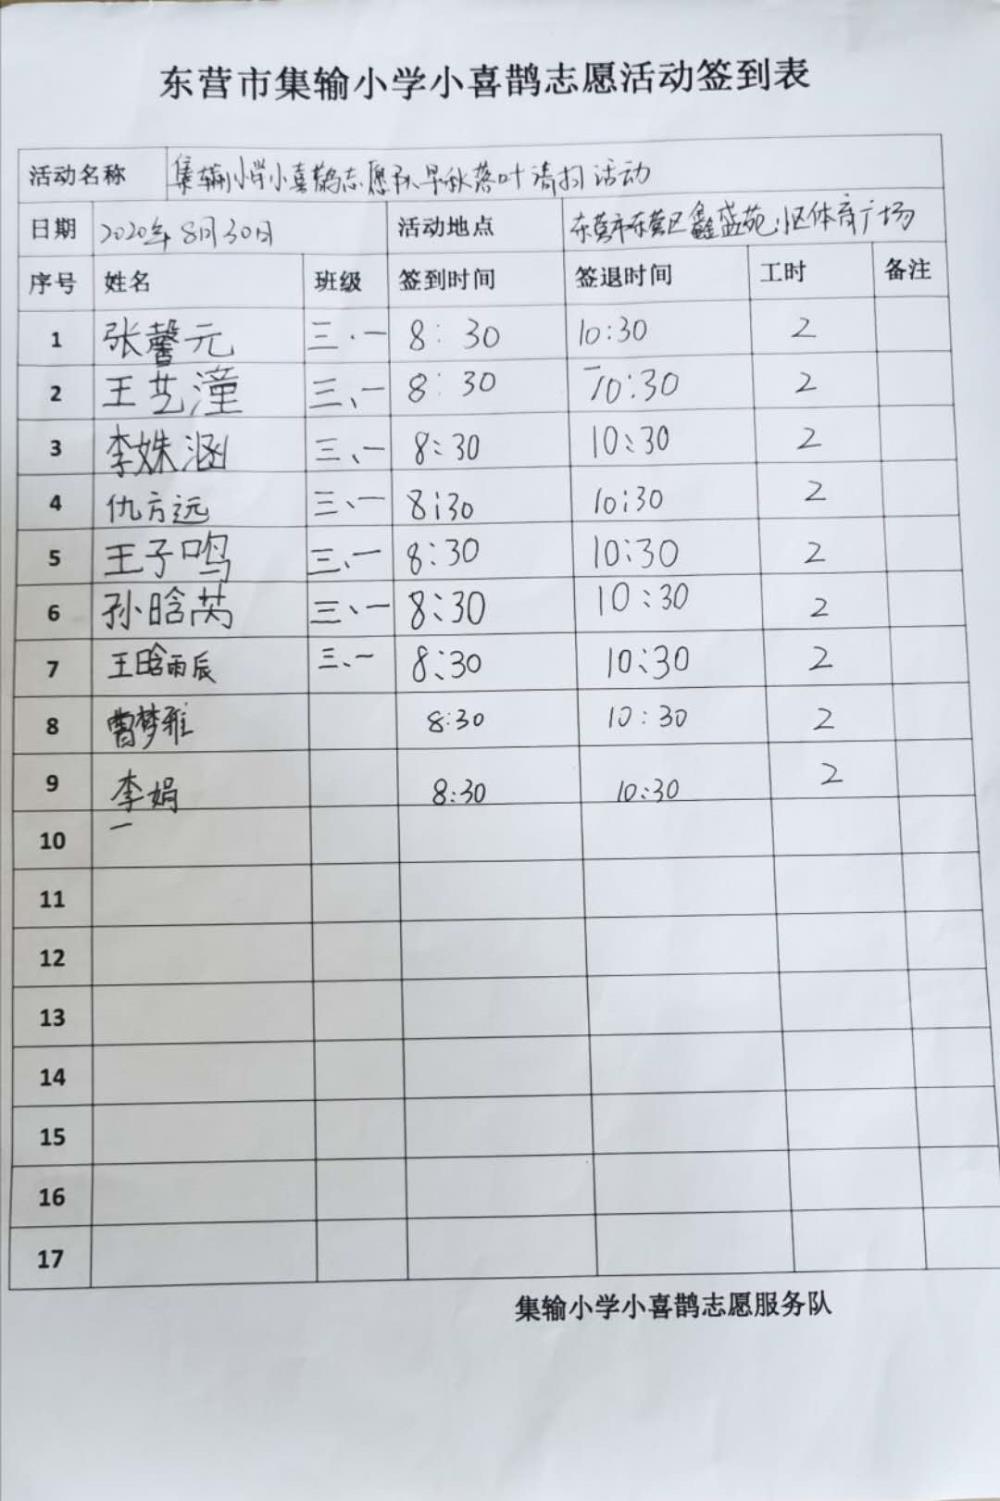 东营市集输小学小喜鹊志愿活动签到表
活动名称 集输小学小喜鹊志愿队早秋落叶清扫活动
日期 2020年8月30日 活动地点 东营市东营区鑫盛苑小区体育广场
序号 姓名 班级 签到时间 签退时间 工时 备注
1 张馨元 三.一 8:30 10:30 2
2 王艺潼 三、一 8:30 10:30 2
3 李姝涵 三、一 8:30 10:30 2
4 仇方远 三、一 8:30 10:30 2
5 王子鸣 三、一 8:30 10:30 2
6 孙晗芮 三、一 8:30 10:30 2
7 王晗雨辰 三、一 8:30 10:30 2
8 曹梦雅 8:30 10:30 2
9 李娟 8:30 10:30 2
10
11
12
13
14
15
16
17
集输小学小喜鹊志愿服务队